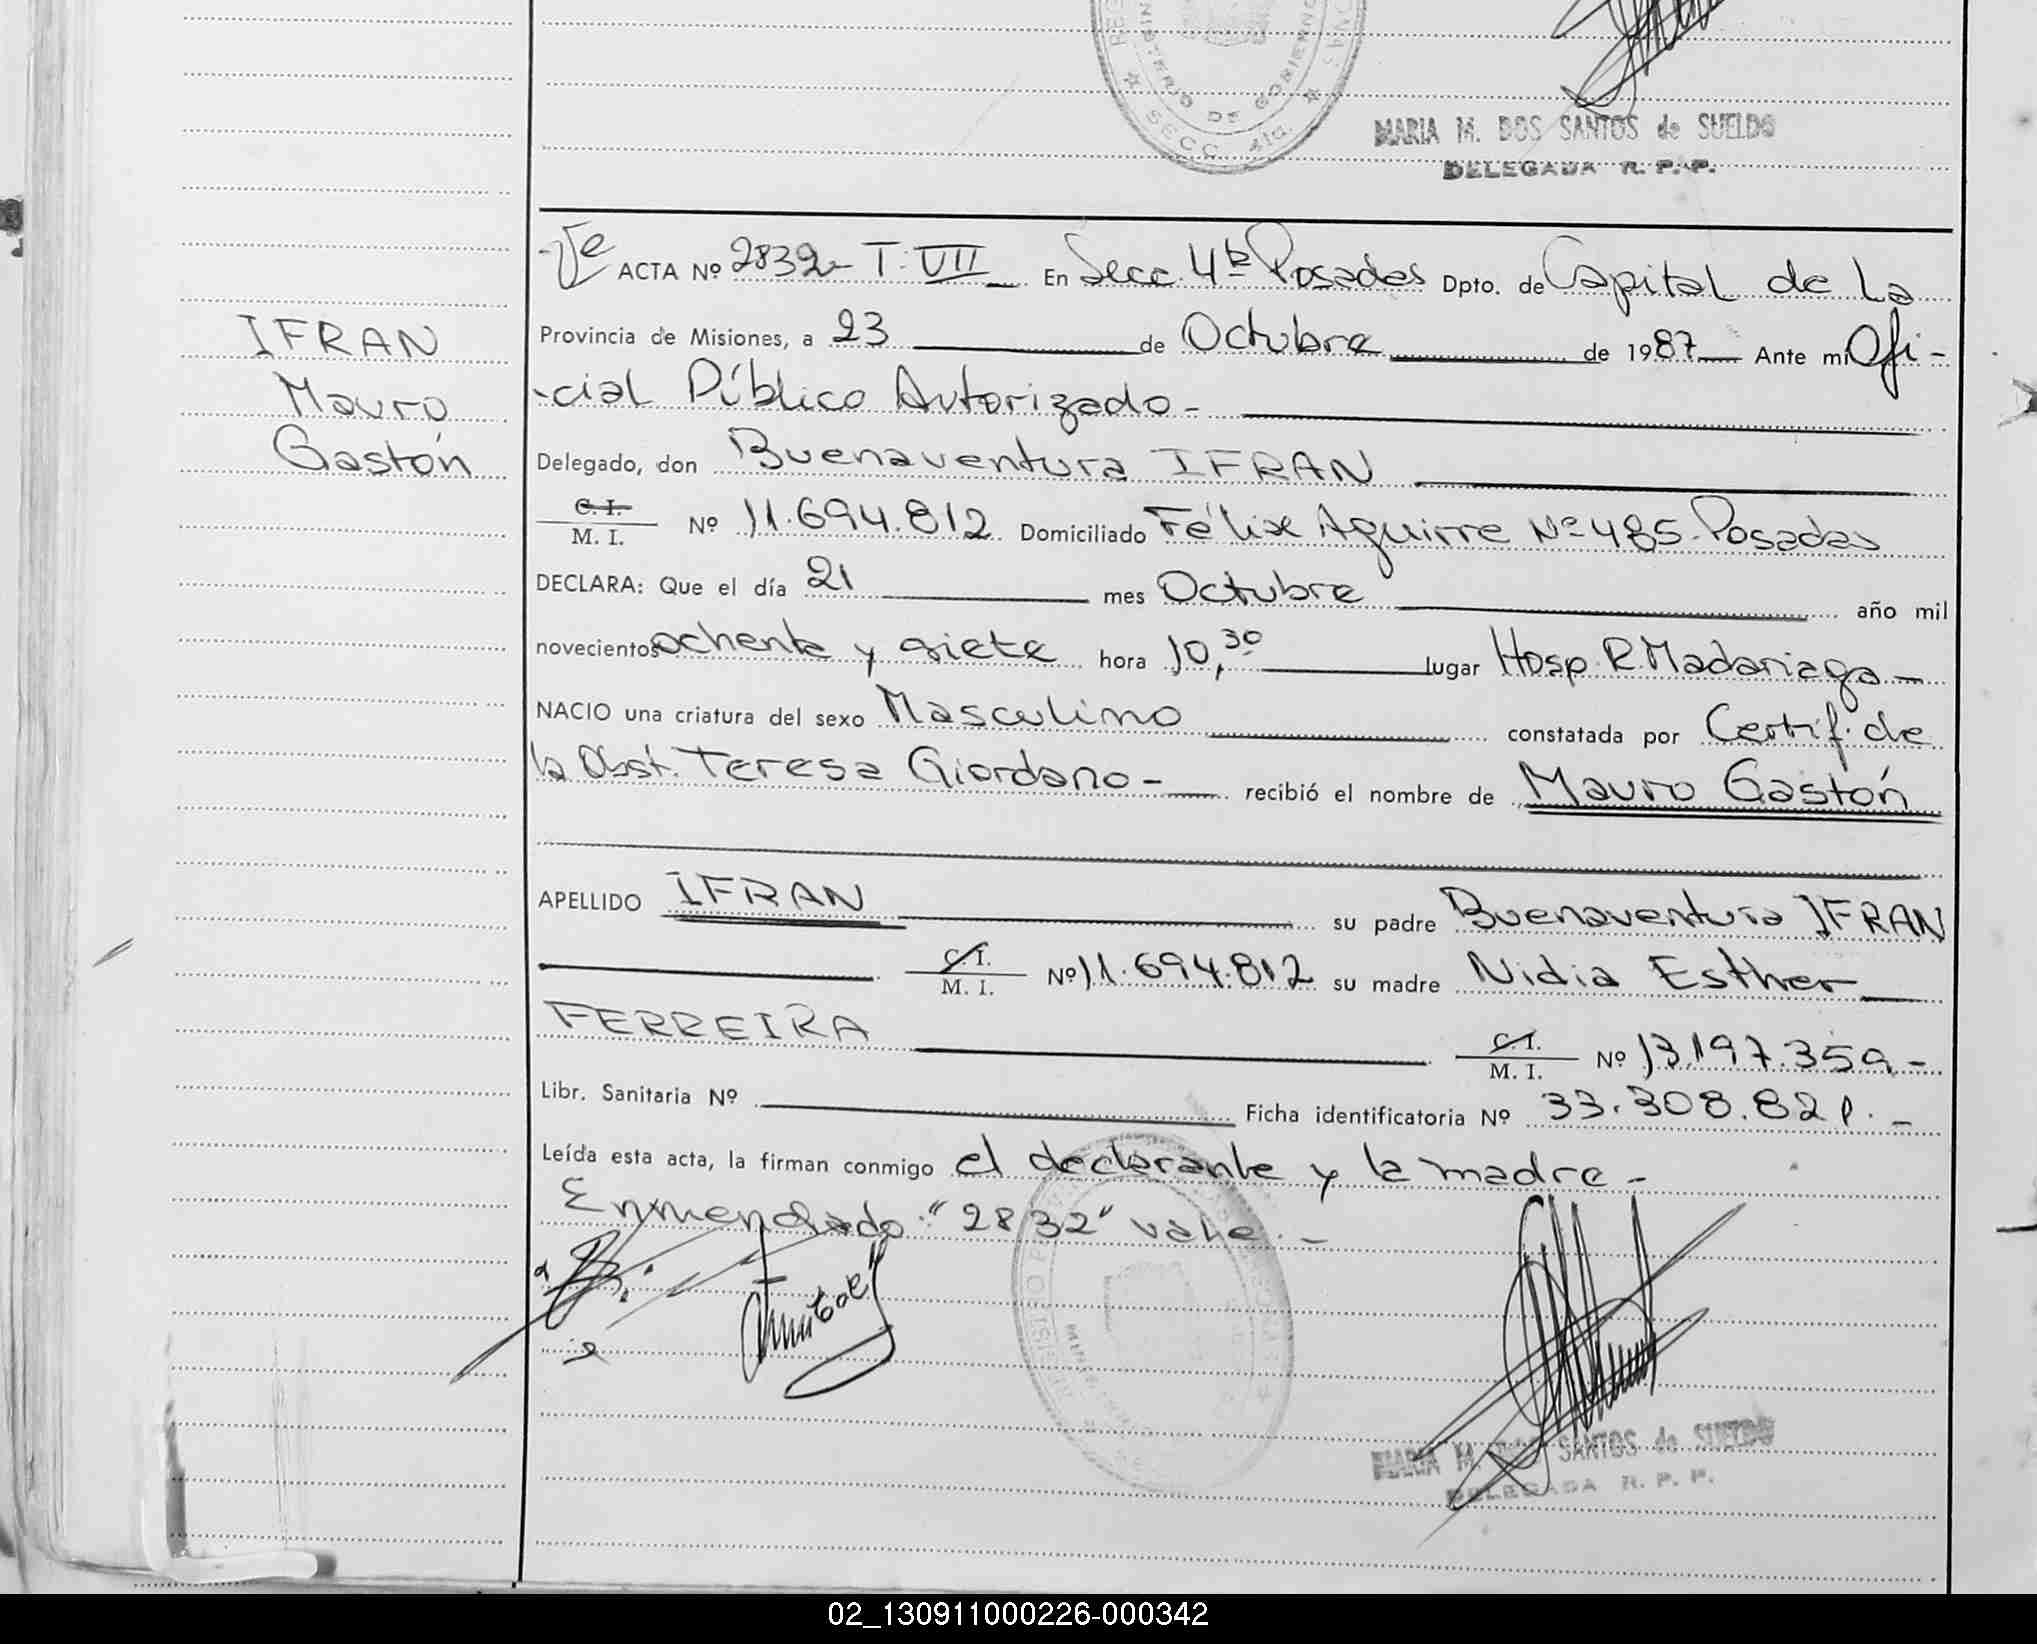 MINISTERIO DE GOBIERNO
SECC. 4ta.
MARIA M. DOS SANTOS de SUELDO
DELEGADA R. P. P.
ACTA Nº 2832- T: VII En Secc. 4ta Posadas Dpto. de Capital de la
Provincia de Misiones, a 23 de Octubre de 1987 Ante mi Ofi-
-cial Público Autorizado-
IFRAN
Mauro
Gastón
Delegado, don Buenaventura IFRAN
C. I. / M. I. Nº 11.694.812 Domiciliado Félix Aguirre Nº 485. Posadas
DECLARA: Que el día 21 mes Octubre año mil
novecientos ochenta y siete hora 10,30 lugar Hosp. R. Madariaga-
NACIO una criatura del sexo Masculino constatada por Certif. de
la Obst. Teresa Giordano- recibió el nombre de Mauro Gastón
APELLIDO IFRAN su padre Buenaventura IFRAN
C. I. / M. I. Nº 11.694.812 su madre Nidia Esther
FERREIRA C. I. / M. I. Nº 13.197.359-
Libr. Sanitaria Nº Ficha identificatoria Nº 33.308.821.-
Leída esta acta, la firman conmigo el declarante y la madre-
Enmendado: "2832" vale.-
MARIA M. DOS SANTOS de SUELDO
DELEGADA R. P. P.
02_130911000226-000342